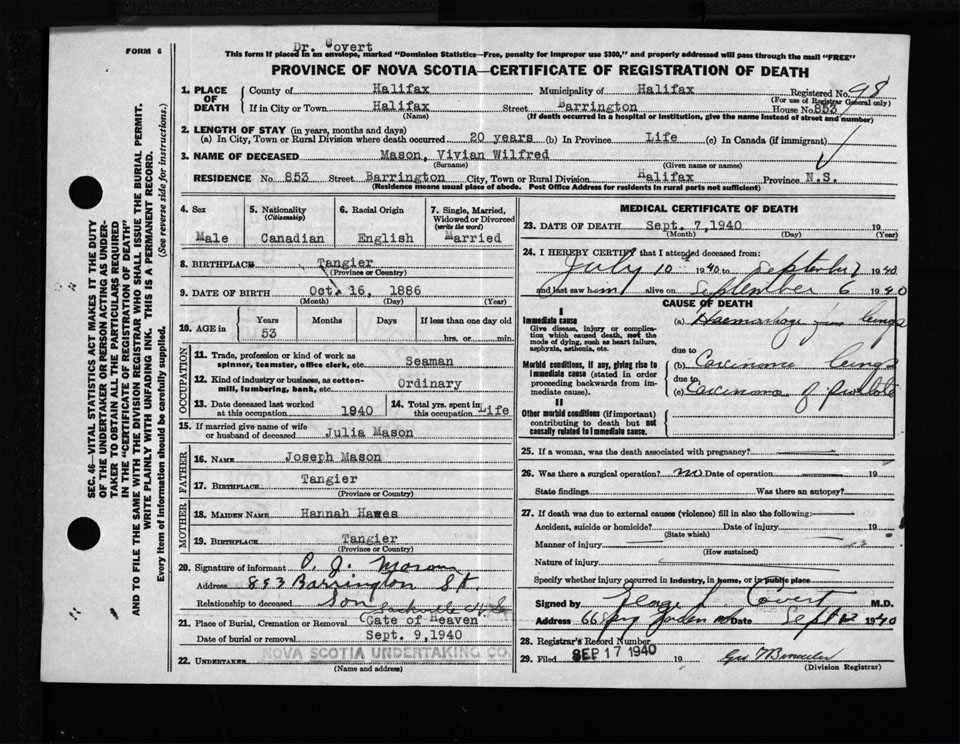 FORM 6
Dr. Covert
This form if placed in an envelope, marked "Dominion Statistics—Free, penalty for improper use $300," and properly addressed will pass through the mail "FREE"
PROVINCE OF NOVA SCOTIA—CERTIFICATE OF REGISTRATION OF DEATH
1. PLACE OF DEATH
County of Halifax Municipality of Halifax Registered No. 98
(For use of Registrar General only)
If in City or Town Halifax Street Barrington House No. 853
(Name) (If death occurred in a hospital or institution, give the name instead of street and number)
2. LENGTH OF STAY (in years, months and days)
(a) In City, Town or Rural Division where death occurred 20 years (b) In Province Life (c) In Canada (if immigrant)
3. NAME OF DECEASED Mason, Vivian Wilfred
(Surname) (Given name or names)
RESIDENCE No. 853 Street Barrington City, Town or Rural Division Halifax Province N.S.
(Residence means usual place of abode. Post Office Address for residents in rural parts not sufficient)
4. Sex
Male
5. Nationality
(Citizenship)
Canadian
6. Racial Origin
English
7. Single, Married, Widowed or Divorced
(write the word)
Married
8. BIRTHPLACE Tangier
(Province or Country)
9. DATE OF BIRTH Oct. 16, 1886
(Month) (Day) (Year)
10. AGE in
Years Months Days If less than one day old
53
hrs. or min.
OCCUPATION
11. Trade, profession or kind of work as spinner, teamster, office clerk, etc. Seaman
12. Kind of industry or business, as cotton-mill, lumbering, bank, etc. Ordinary
13. Date deceased last worked at this occupation 1940
14. Total yrs. spent in this occupation Life
15. If married give name of wife or husband of deceased Julia Mason
FATHER
16. NAME Joseph Mason
17. BIRTHPLACE Tangier
(Province or Country)
MOTHER
18. MAIDEN NAME Hannah Hawes
19. BIRTHPLACE Tangier
(Province or Country)
20. Signature of informant P. J. Mason
Address 853 Barrington St.
Relationship to deceased Son
Sackville
21. Place of Burial, Cremation or Removal Gate of Heaven
Date of burial or removal Sept. 9, 1940
22. UNDERTAKER NOVA SCOTIA UNDERTAKING CO.
(Name and address)
MEDICAL CERTIFICATE OF DEATH
23. DATE OF DEATH Sept. 7, 1940 19
(Month) (Day) (Year)
24. I HEREBY CERTIFY that I attended deceased from:
July 10 1940 to September 7 1940
and last saw him alive on September 6 1940
CAUSE OF DEATH
I
Immediate cause
Give disease, injury or complication which caused death, not the mode of dying, such as heart failure, asphyxia, asthenia, etc.
(a) Haemorrhage from lungs
due to
Morbid conditions, if any, giving rise to immediate cause (stated in order proceeding backwards from immediate cause).
(b) Carcinoma lungs
due to
(c) Carcinoma of prostate
II
Other morbid conditions (if important) contributing to death but not causally related to immediate cause.
25. If a woman, was the death associated with pregnancy?
26. Was there a surgical operation? no Date of operation 19
State findings Was there an autopsy?
27. If death was due to external causes (violence) fill in also the following:—
Accident, suicide or homicide? Date of injury 19
(State which)
Manner of injury
(How sustained)
Nature of injury
Specify whether injury occurred in industry, in home, or in public place
Signed by Covert M.D.
Address Date Sept 1940
28. Registrar's Record Number
29. Filed SEP 17 1940 19
(Division Registrar)
SEC. 46—VITAL STATISTICS ACT MAKES IT THE DUTY
OF THE UNDERTAKER OR PERSON ACTING AS UNDER-
TAKER TO OBTAIN ALL THE PARTICULARS REQUIRED
IN THE "CERTIFICATE OF REGISTRATION OF DEATH"
AND TO FILE THE SAME WITH THE DIVISION REGISTRAR WHO SHALL ISSUE THE BURIAL PERMIT.
WRITE PLAINLY WITH UNFADING INK. THIS IS A PERMANENT RECORD.
Every item of information should be carefully supplied. (See reverse side for instructions.)